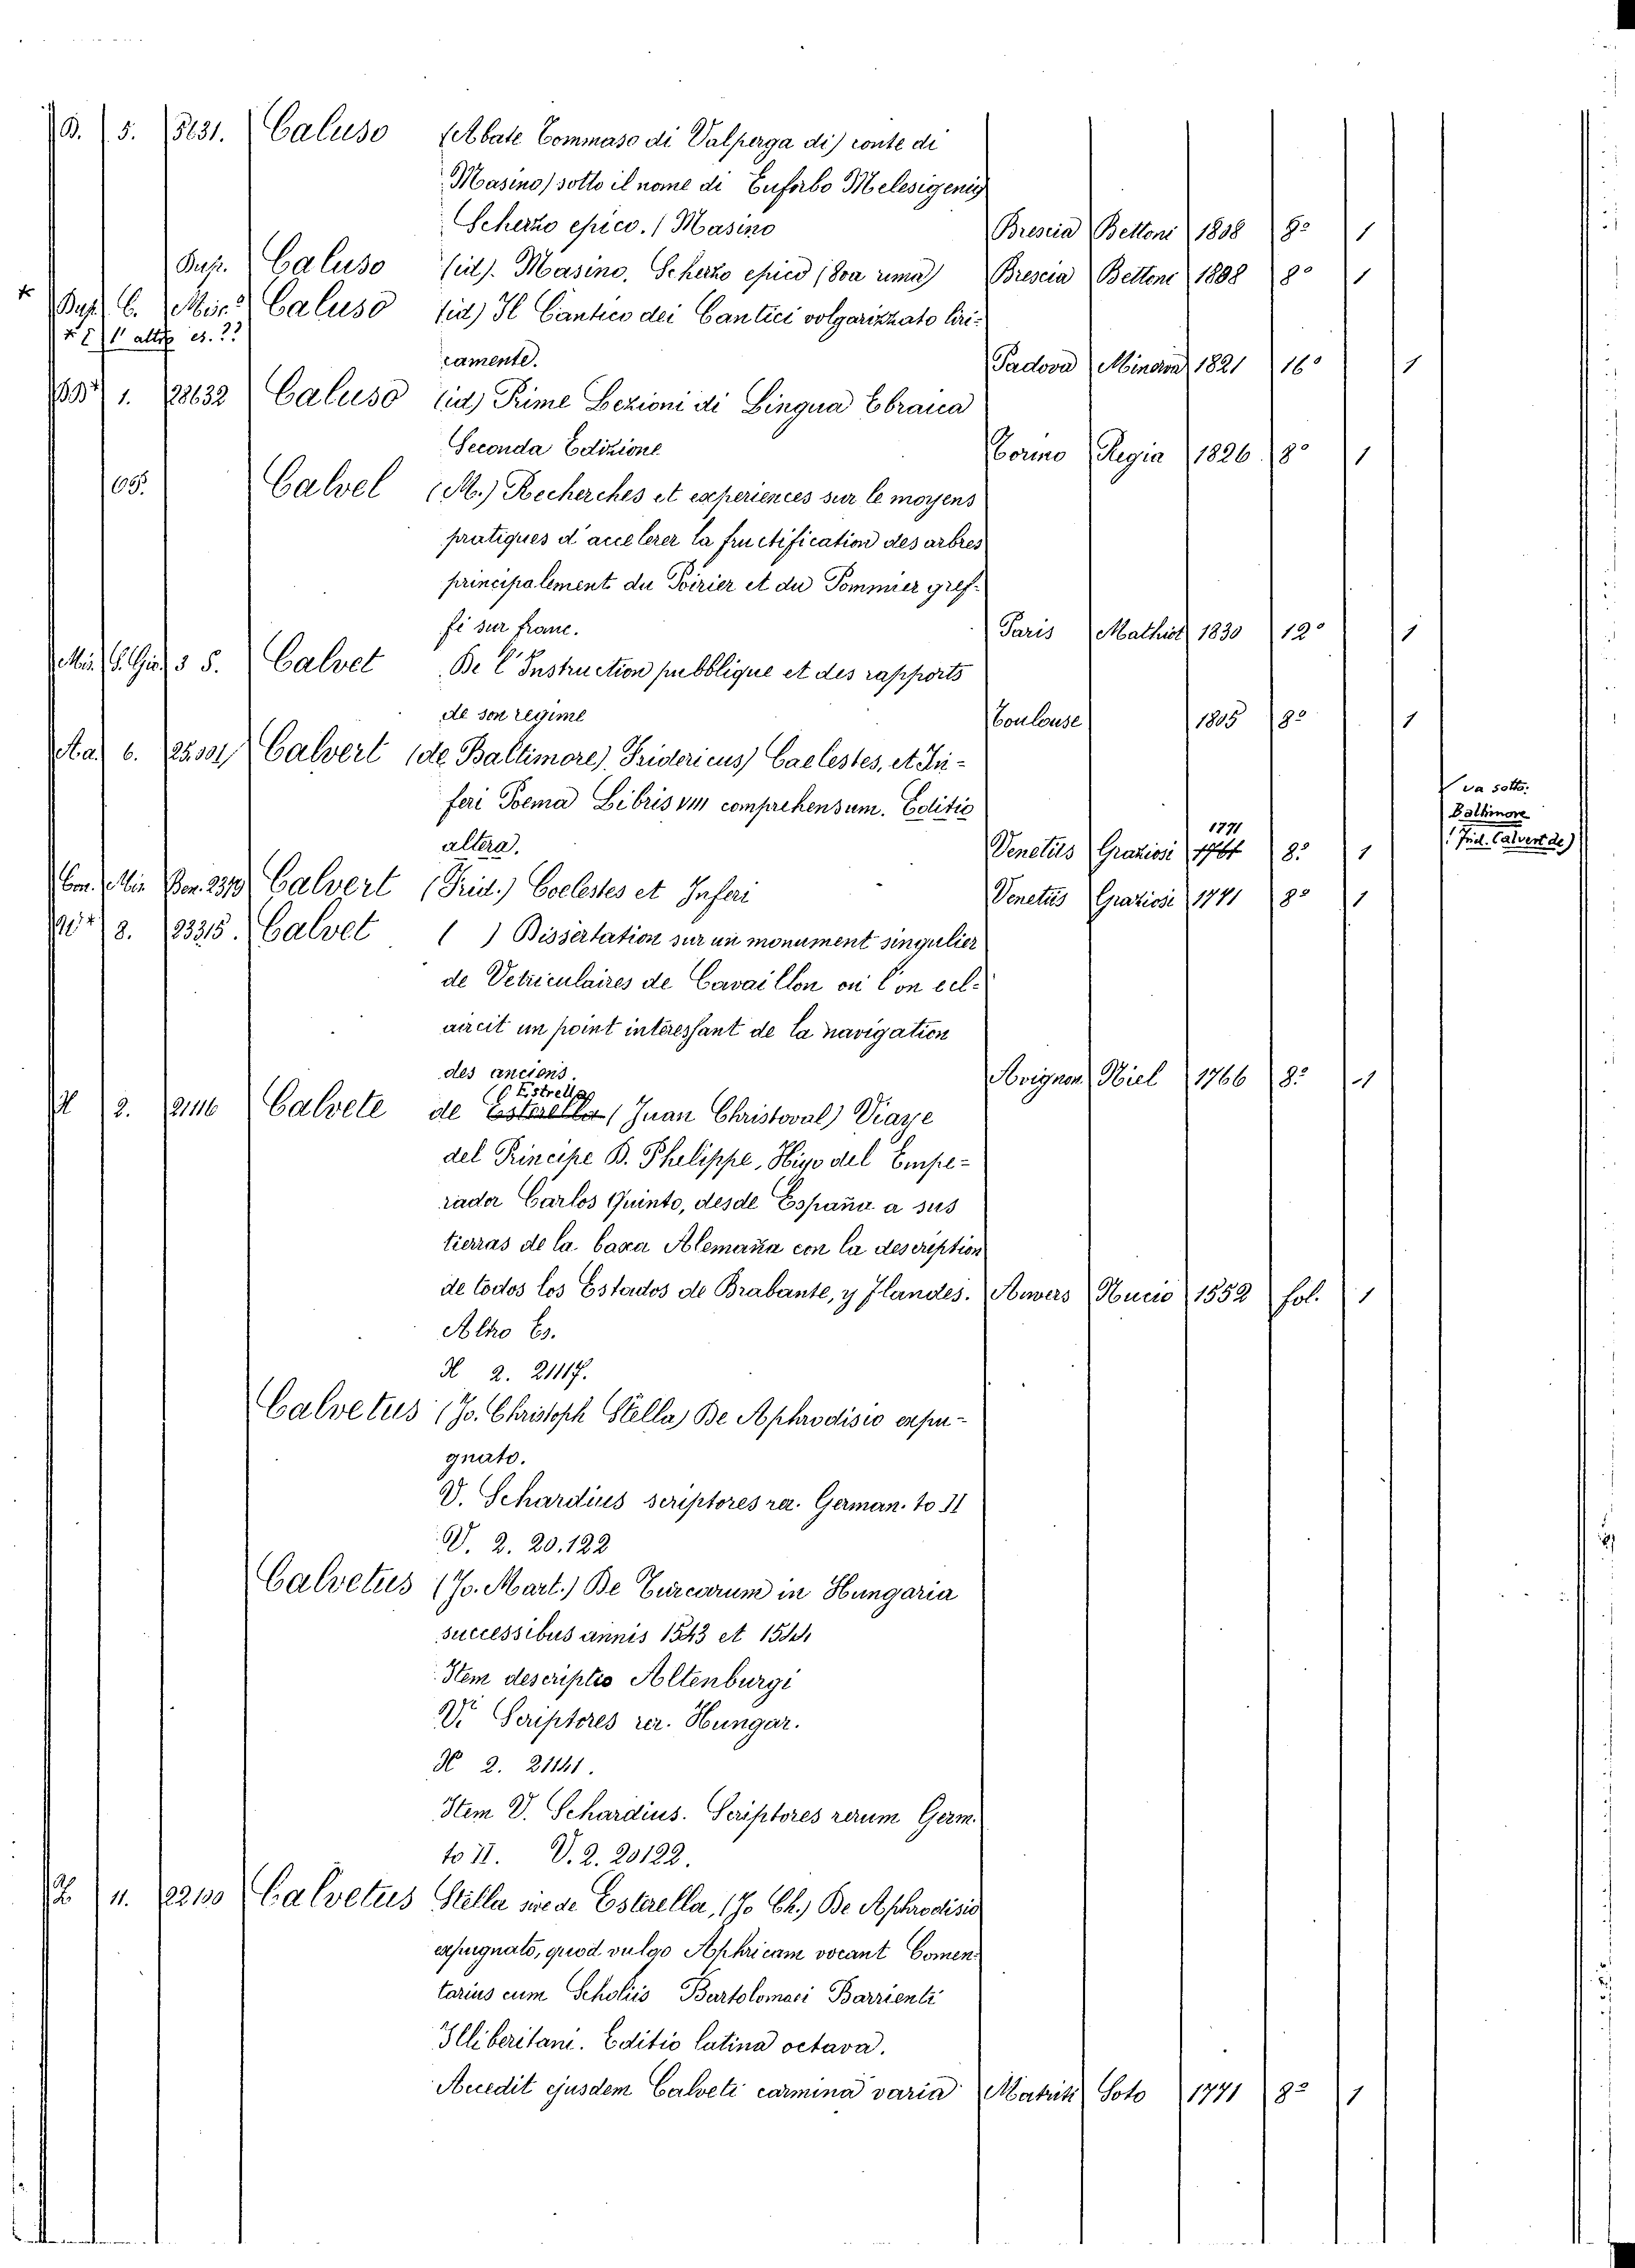 B. 5. 5631. Caluso (Abate Tommaso di Valperga di) conte di
Masino) sotto il nome di Euforbo Melesigenig
Scherzo epico. / Masino Brescia Bettoni 1808 8º 1
Dup. Caluso (id). Masino. Scherzo epico (8va rima) Brescia Bettoni 1808 8º 1
* Dup. C. Caluso (id) Il Cantico dei Cantici volgarizzato liri-
camente. Padova Minerva 1821 16º 1
1. 28632 Caluso (id) Prime Lezioni di Lingua Ebraica
Seconda Edizione Torino Regia 1826 8º 1
Calvel (M.) Recherches et experiences sur le moyens
pratiques d'accelerer la fructification des arbres
principalement du Poirier et du Pommier gref-
fi sur franc. Paris Mathiot 1830 12º 1
3 5. Calvet De l'Instruction pubblique et des rapports
de son regime Toulouse 1805 8º 1
Aa. 6. Calvert (de Baltimore) Fridericus) Caelestes, et In-
feri Poema Libris VIII comprehensum. Editio
va sotto:
Baltimore
(Frid. Calvert de)
altera. Venetiis Graziosi 1771 8º 1
Calvert (Frid.) Coelestes et Inferi Venetiis Graziosi 1771 8º 1
8. 23315. Calvet ( ) Dissertation sur un monument singulier
de Vetriculaires de Cavaillon où l'on ecl-
aircit un point interessant de la navigation
des anciens. Avignon Niel 1766 8º 1
Estrella
H 2. 21116 Calvete de Esterella (Juan Christoval) Viaye
del Principe D. Phelippe, Hiyo del Empe-
rador Carlos Quinto, desde España a sus
tierras de la baxa Alemaña con la description
de todos los Estados de Brabante, y Flandes. Anvers Nucio 1552 fol. 1
Altro Es.
H 2. 21117.
Calvetus (Jo. Christoph Stella) De Aphrodisio expu-
gnato.
V. Schardius scriptores rer. German. to II
V. 2. 20.122
Calvetus (Jo. Mart.) De Turcarum in Hungaria
successibus annis 1543 et 1544
Item descriptio Altenburgi
V. Scriptores rer. Hungar.
H 2. 21141.
Item V. Schardius. Scriptores rerum Germ.
to II. V. 2. 20122.
11. 22130 Calvetus Stella sive de Esterella, (Jo Ch.) De Aphrodisio
expugnato, quod vulgo Aphricam vocant Comen-
tarius cum Scholiis Bartolomaei Barrienti
Illiberitani. Editio latina octava.
Accedit ejusdem Calveti carmina varia Matriti Soto 1771 8º 1